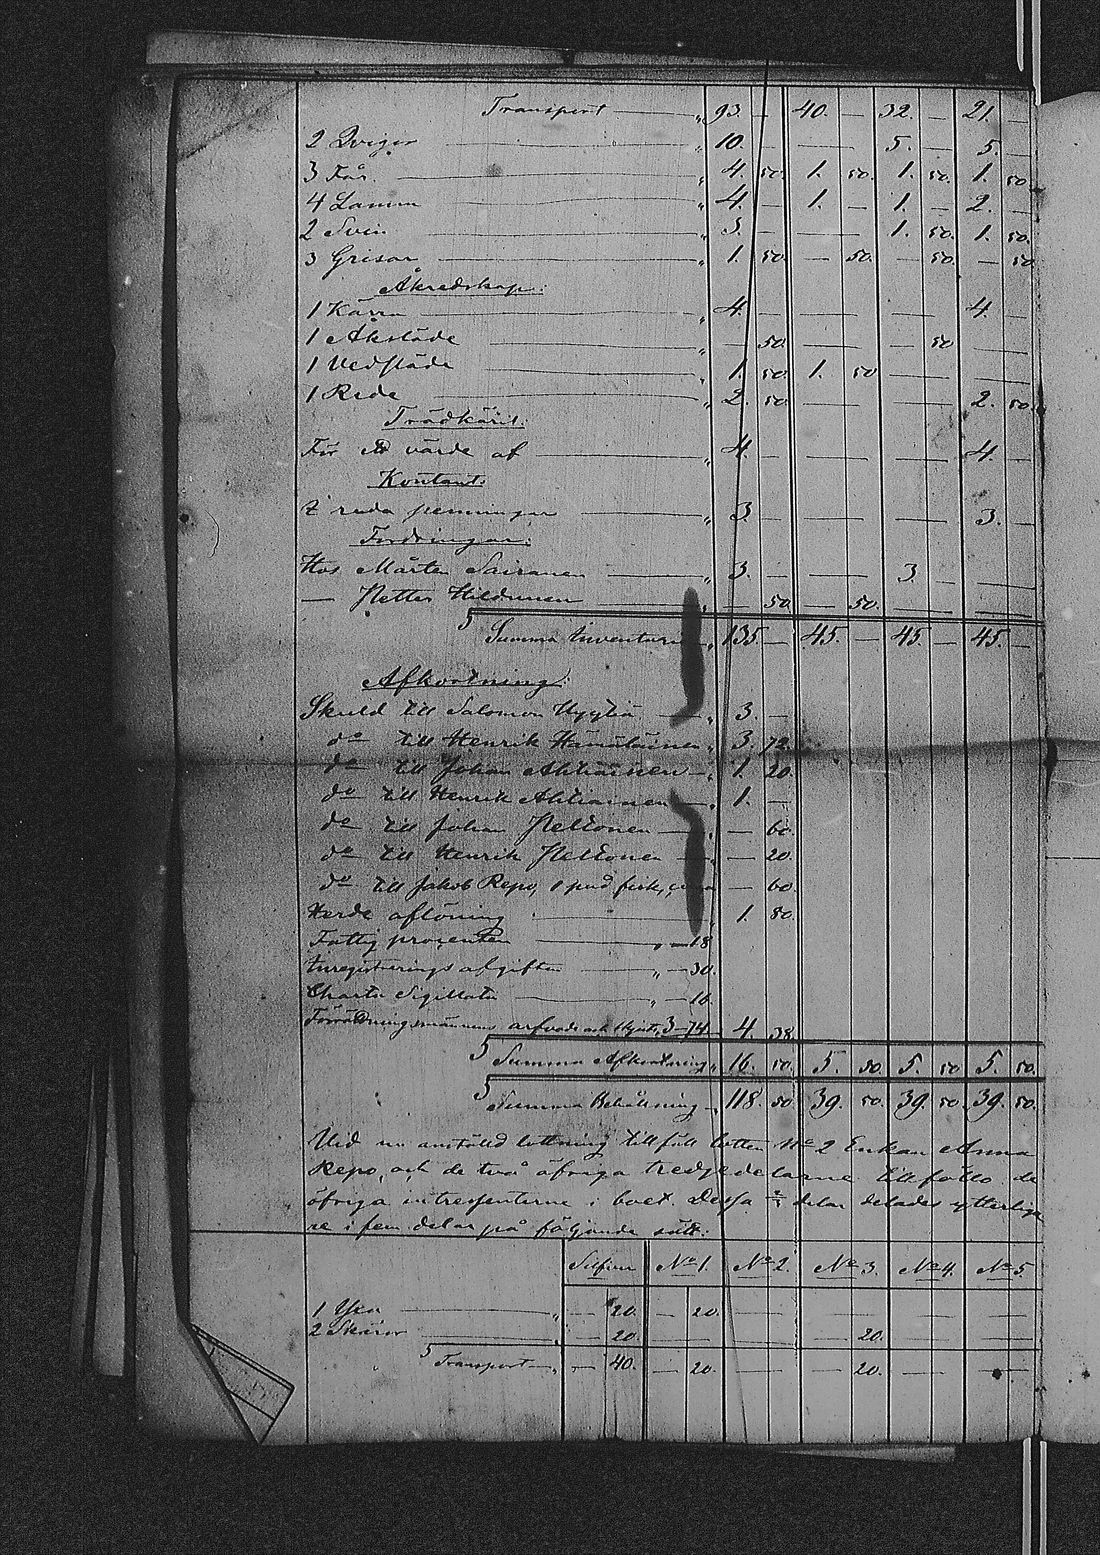 Transport — „ 93. — 40. — 32. — 21. —
2 Qvigor — „ 10. — — 5. — 5. —
3 Får. — „ 4. 50. 1. 50. 1. 50. 1. 50.
4 Lamm — „ 4. — 1. — 1. — 2. —
2 Svin — „ 3. — — 1. 50. 1. 50.
3 Grisar — „ 1. 50. — 50. — 50. — 50
Åkredskap:
1 Kärra — „ 4. — — — 4. —
1 Åksläde — „ — 50. — — 50 —
1 Vedsläde — „ 1. 50 1. 50 — —
1 Rede — „ 2. 50. — — 2. 50.
Trädkäril:
För ett värde af — „ 4. — — — 4. —
Kontant:
I reda penningar — „ 3. — — — 3. —
Fordringar:
Hos Mårten Sairanen — „ 3. — — 3. — —
— Petter Hildunen — „ — 50. — 50. — —
Summa Inventarii „ 135 — 45. — 45. — 45. —
Afkortning:
Skuld till Salomon Hyytiä — „ 3. —
do till Henrik Hämäläinen „ 3. 72.
do till Johan Ahtiainen — „ 1. 20.
do till Henrik Ahtiainen — „ 1. —
do till Johan Pekkonen — „ — 60.
do till Henrik Pekkonen — „ — 20.
do till Jakob Repo, 1 pud fisk, — 60.
Herde aflöning — 1. 80.
Fattig procenten — „ — 18
Inregistrerings afgiften — „ — 30.
Charta Sigillata — „ — 16.
Förrättningsmännens arfvode och 3-74 4. 38.
Summa Afkortning „ 16. 50. 5. 50. 5. 50 5. 50.
Summa Behållning „ 118. 50 39. 50. 39. 50. 39. 50.
Vid nu anstäld lottning tillföll lotten No 2 Enkan Anna
Repo, och de två öfriga tredjedelarne tillföllo de
öfriga intressenterne i boet. Dessa 2/3 delar delades ytterliga
re i fem delar på följande sätt:
Silfver No 1. No 2. No 3. No 4. No 5.
1 Yxa — „ — 20. — 20. — — — —
2 Skäror — „ — 20. — — — 20. — —
Transport — „ — 40. — 20. — — 20. — —